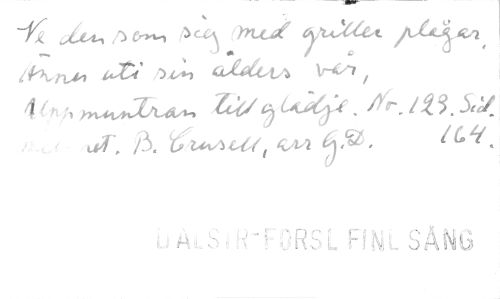 Ve den som sig med griller plågar,
Ännu uti sin ålders vår,
Uppmuntran till glädje. No. 123. Sid.
B. Crusell, arr G.D. 164.
DALSTR-FÖRSL FINL SÅNG